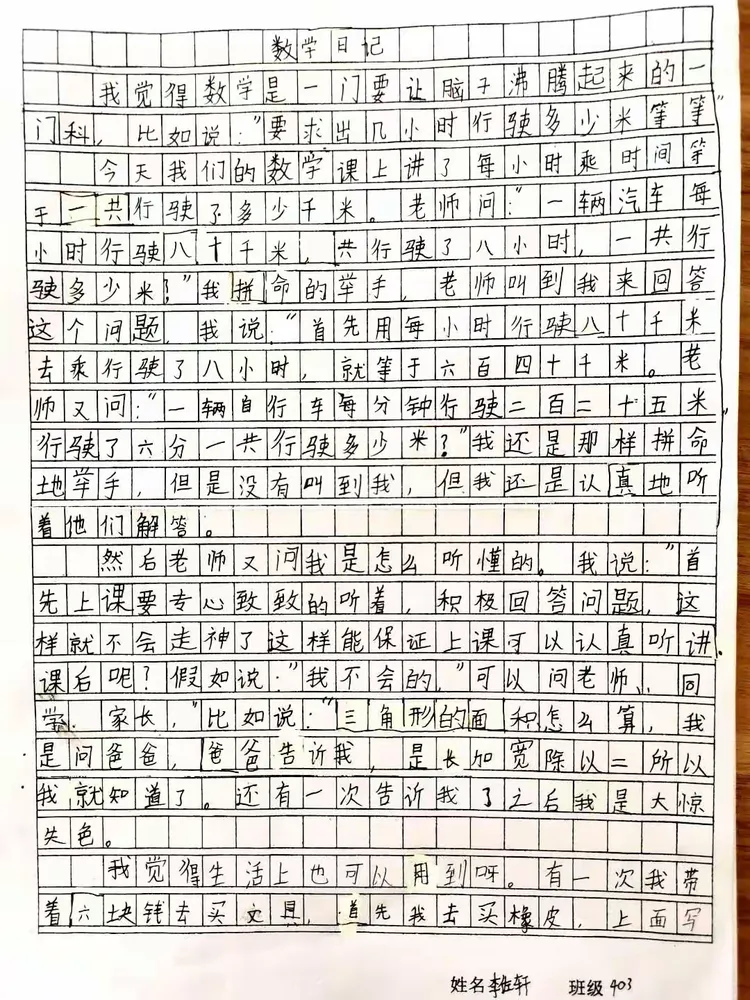 数学日记
我觉得数学是一门要让脑子沸腾起来的一
门科，比如说："要求出几小时行驶多少米等等"
今天我们的数学课上讲了每小时乘时间等
于一共行驶了多少千米。老师问："一辆汽车每
小时行驶八十千米，共行驶了八小时，一共行
驶多少米？"我拼命的举手，老师叫到我来回答
这个问题，我说："首先用每小时行驶八十千米
去乘行驶了八小时，就等于六百四十千米。老
师又问："一辆自行车每分钟行驶二百二十五米，
行驶了六分一共行驶多少米？"我还是那样拼命
地举手，但是没有叫到我，但我还是认真地听
着他们解答。
然后老师又问我是怎么听懂的。我说："首
先上课要专心致致的听着，积极回答问题，这
样就不会走神了这样能保证上课可以认真听讲.
课后呢？假如说："我不会的，"可以问老师、同
学、家长，"比如说："三角形的面积怎么算，我
是问爸爸，爸爸告诉我，是长加宽除以二所以
我就知道了。还有一次告诉我了之后我是大惊
失色。
我觉得生活上也可以用到呀。有一次我带
着六块钱去买文具，首先我去买橡皮，上面写
姓名 轩 班级 403